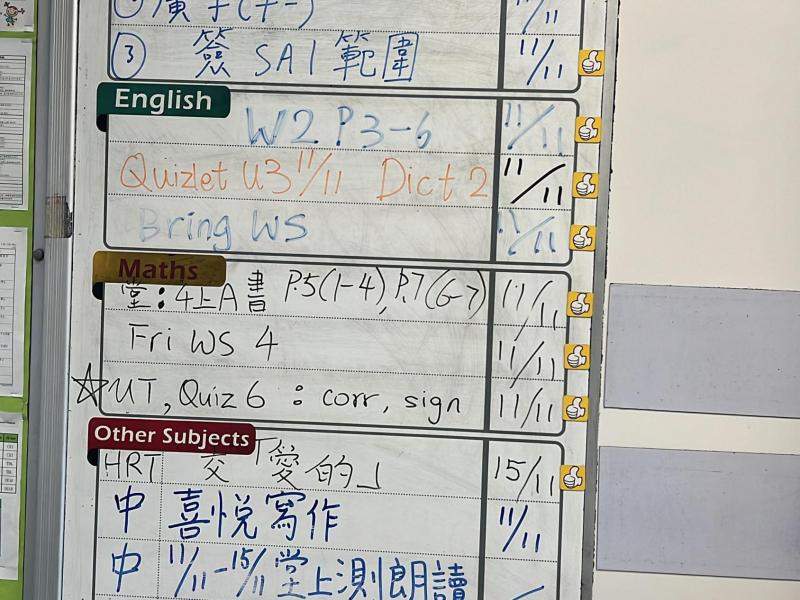 ① 廣子(十一) 11/11
③ 簽 SA1 範圍 11/11
English
W2 P3-6 11/11
Quizlet U3 11/11 Dict 2 11/11
Bring WS 11/11
Maths
堂:4上A書 P.5(1-4), P.7(6-7) 11/11
Fri WS 4 11/11
☆UT, Quiz 6 : corr, sign 11/11
Other Subjects
HRT 交「愛的」 15/11
中 喜悅寫作 11/11
中 11/11-15/11 堂上測朗讀